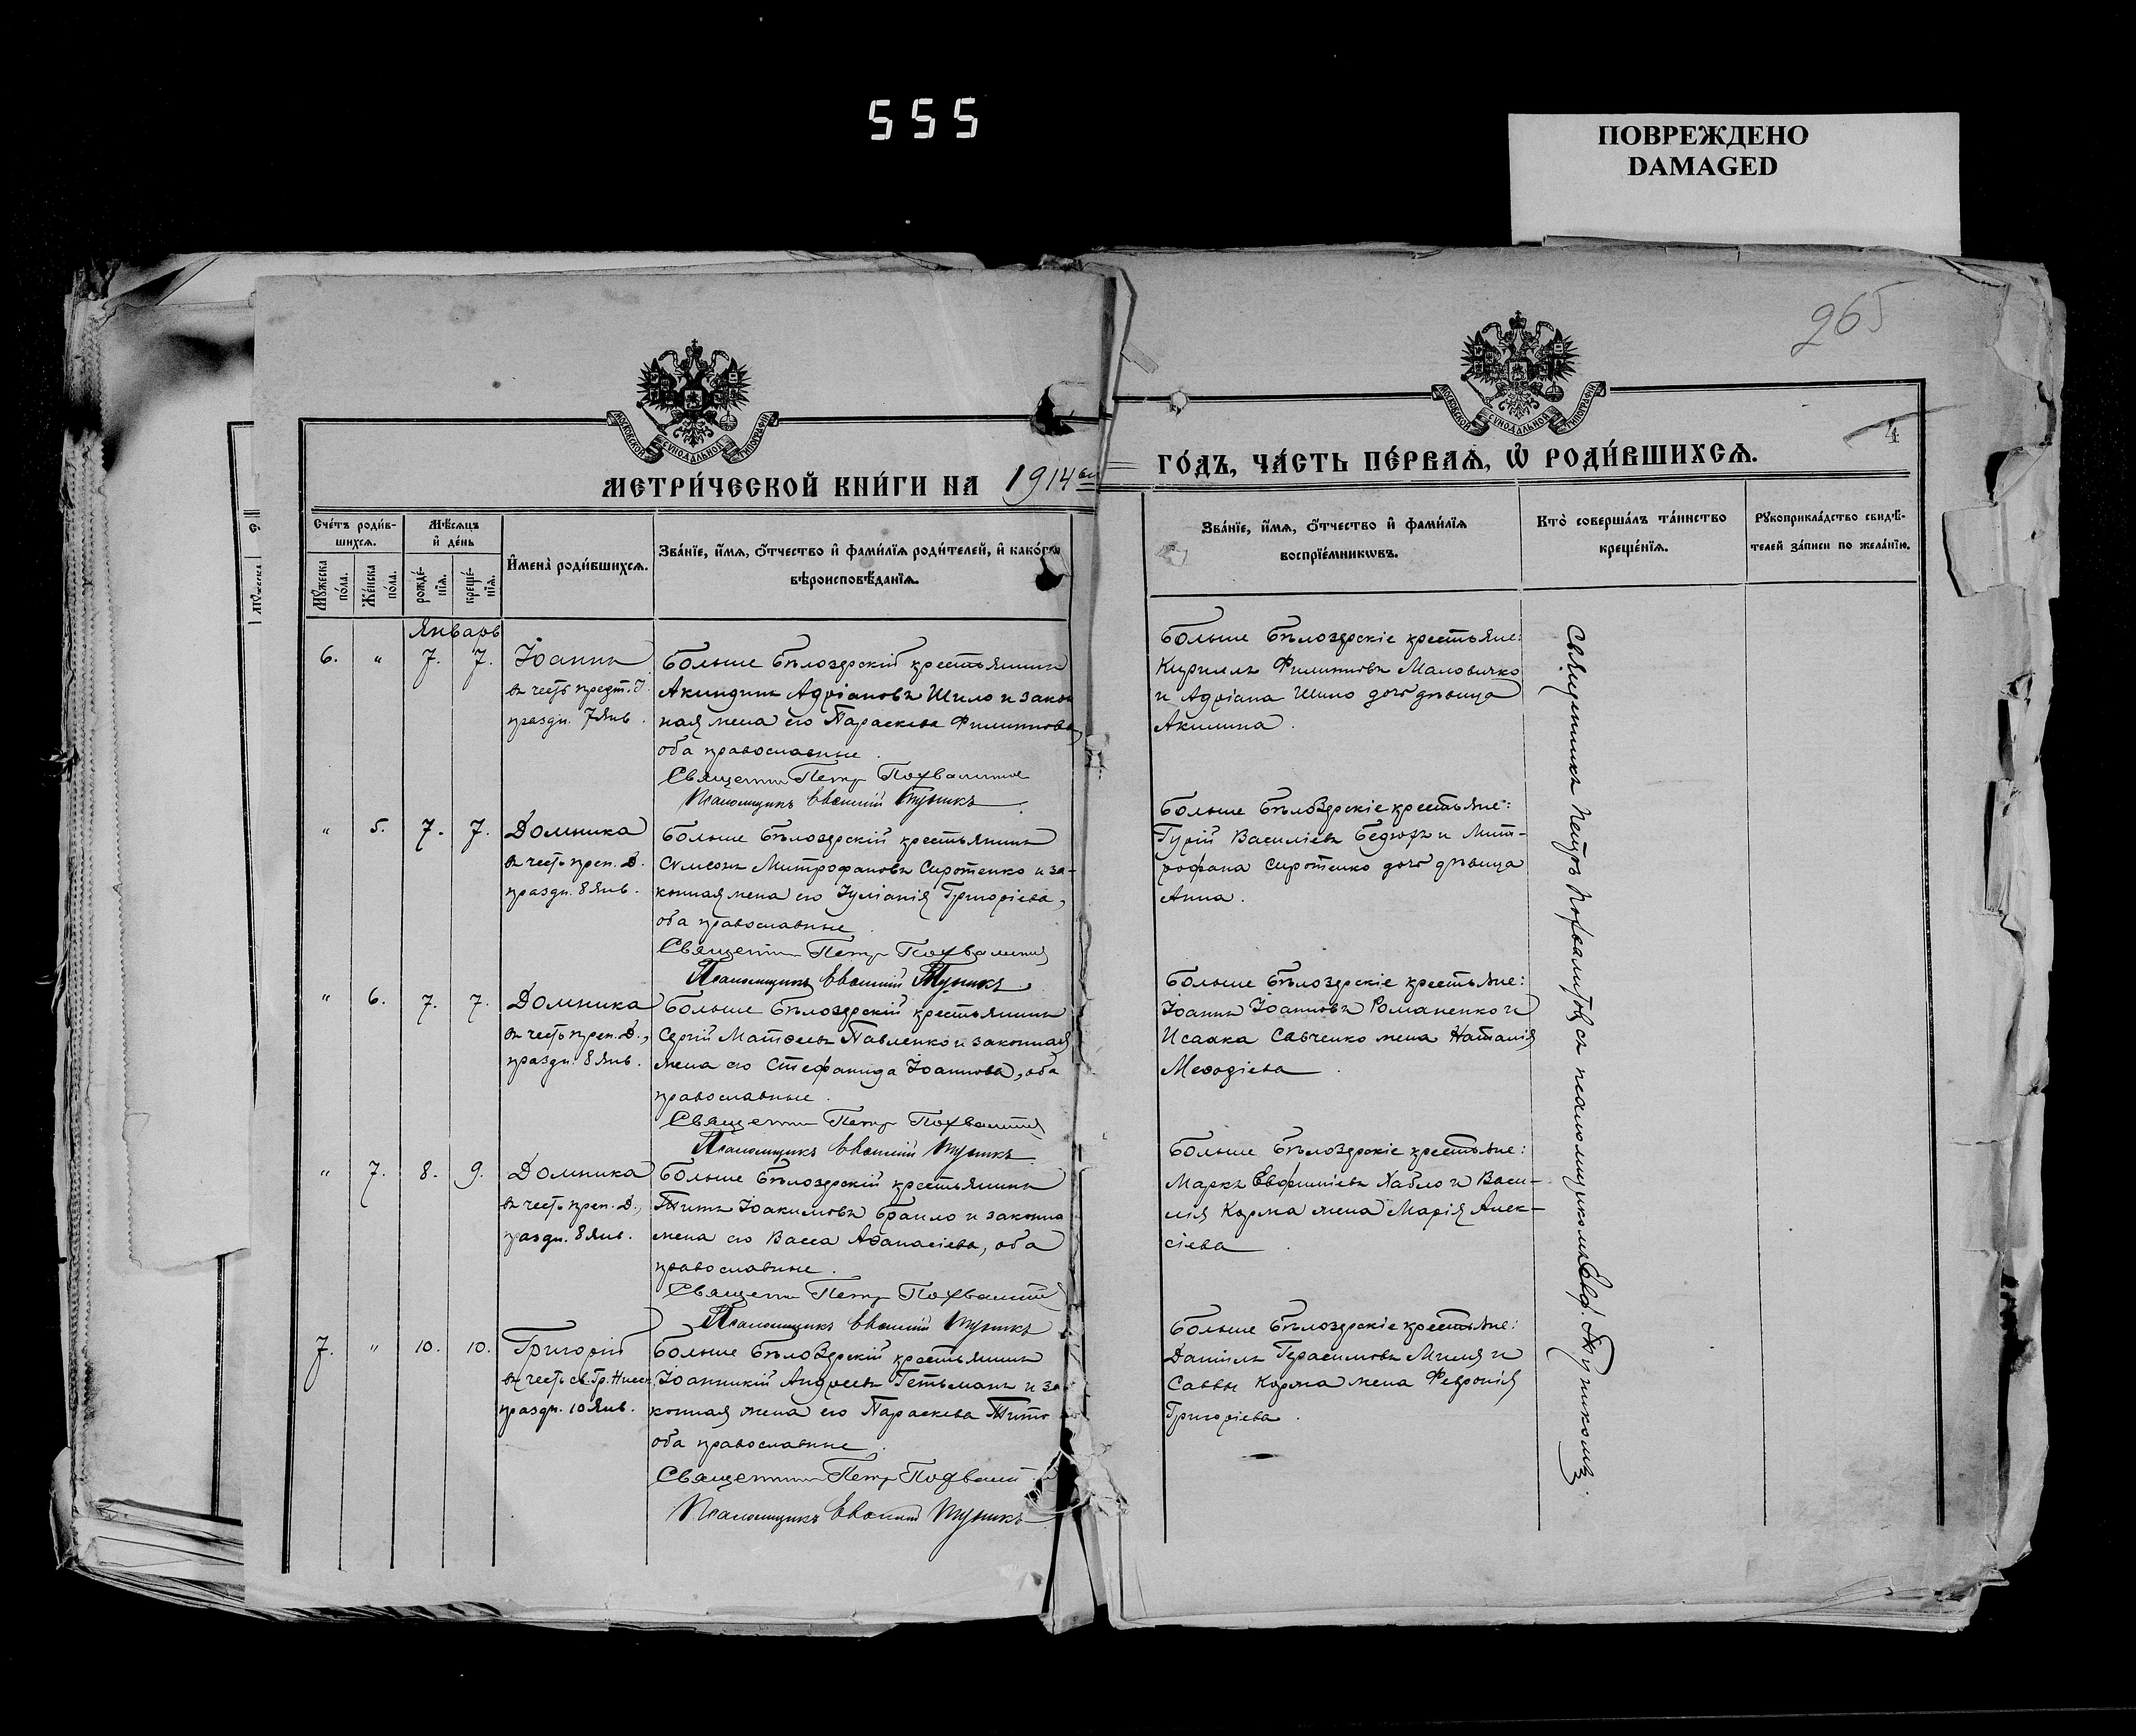 555
ПОВРЕЖДЕНО
DAMAGED
265
4
МОСКОВСКОЙ СѴНОДАЛЬНОЙ ТИПОГРАФІИ
МОСКОВСКОЙ СѴНОДАЛЬНОЙ ТИПОГРАФІИ
МЕТРИ́ЧЕСКОЙ КНИ́ГИ НА 1914 ый ГО́ДЪ, ЧА́СТЬ ПЕ́РВАѦ, Ѡ҆ РОДИ́ВШИХСѦ.
Сче́тъ роди́в-
шихсѧ.
Мꙋ́жеска
по́ла.
Же́нска
по́ла.
Мѣ́сѧцъ
и҆ де́нь
рожде́-
нїѧ.
креще́-
нїѧ.
И҆мена̀ роди́вшихсѧ.
Зва́нїе, и҆́мѧ, ѻ҆́тчество и҆ фами́лїѧ роди́телей, и҆ како́гѡ
вѣроисповѣ́данїѧ.
Зва́нїе, и҆́мѧ, ѻ҆́тчество и҆ фами́лїѧ
воспрїе́мникѡвъ.
Кто̀ соверша́лъ та́инство
креще́нїѧ.
Рꙋкоприкла́дство свидѣ́-
телей за́писи по жела́нїю.
Январь
6. " 7. 7. Іоаннъ
въ честь предт. І.
праздн. 7 Янв.
Больше Бѣлозерскій крестьянинъ
Акиндинъ Адріановъ Шило и закон
ная жена его Параскева Филиппова
оба православные.
Священник Петр Похвалитов
Псаломщикъ Евфимій Тупикъ
Больше Бѣлозерскіе крестьяне:
Кириллъ Филипповъ Маловичко
и Адріана Шило дочь дѣвица
Акилина.
" 5. 7. 7. Домника
въ честь преп. Д.
праздн. 8 Янв.
Больше Бѣлозерскій крестьянинъ
Сѵмеонъ Митрофановъ Сиротенко и за-
конная жена его Іуліанія Григоріева,
оба православные.
Священник Петр Похвалитов
Псаломщикъ Евфимій Тупикъ
Больше Бѣлозерскіе крестьяне:
Гурій Василіевъ Бедюхъ и Мит-
рофана Сиротенко дочь дѣвица
Анна.
" 6. 7. 7. Домника
въ честь преп. Д.,
праздн. 8 Янв.
Больше Бѣлозерскій крестьянинъ
Сергій Матѳеевъ Павленко и законная
жена его Стефанида Іоаннова, оба
православные.
Священник Петр Похвалитов
Псаломщикъ Евфимій Тупикъ
Больше Бѣлозерскіе крестьяне:
Іоаннъ Іоанновъ Романенко и
Исаака Савченко жена Наталія
Меѳодіева.
" 7. 8. 9. Домника
въ честь преп. Д.,
праздн. 8 Янв.
Больше Бѣлозерскій крестьянинъ
Титъ Іоакимовъ Браило и законна
жена его Васса Аѳанасіева, оба
православные.
Священник Петр Похвалитов
Псаломщикъ Евфимій Тупикъ
Больше Бѣлозерскіе крестьяне:
Маркъ Евфиміевъ Хабло и Васи-
лія Коржа жена Марія Алек-
сіева.
7. " 10. 10. Григорій
въ честь св. Гр. Нисск.
праздн. 10 Янв.
Больше Бѣлозерскій крестьянинъ
Іоанникій Андреевъ Гетьманъ и за
конная жена его Параскева Тито
оба православные.
Священник Петр Похвалит
Псаломщикъ Евфимій Тупикъ
Больше Бѣлозерскіе крестьяне:
Даніилъ Герасимовъ Миля и
Саввы Коржа жена Февронія
Григоріева.
Священникъ Петръ Похвалитовъ съ псаломщикомъ Евф. Тупикомъ.